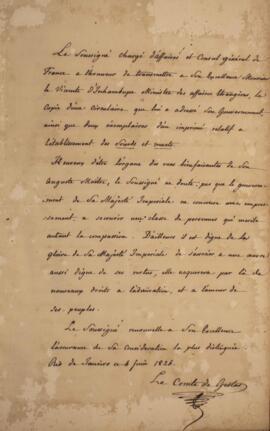 Le Soussigné chargé d'affaires et Consul général de
France a l'honneur de transmettre à Son Excellence Monsieur
le Vicomte d'Inhambupe Ministre des affaires étrangères, la
Copie d'une Circulaire que lui a adressé Son Gouvernement,
ainsi que deux exemplaires d'un imprimé relatif à
l'établissement des Sourds et muets.
Heureux d'être l'organe des vues bienfaisantes de Son
Auguste Maître, le Soussigné ne doute pas que le gouverne-
ment de Sa Majesté Impériale ne concoure avec empres-
sement à secourir une classe de personnes qui mérite
autant la compassion. D'ailleurs il est digne de la
gloire de Sa Majesté Impériale de s'associer à une œuvre
aussi digne de ses vertus, elle acquerera par là de
nouveaux droits à l'admiration, et à l'amour de
ses peuples.
Le Soussigné renouvelle à Son Excellence
l'assurance de Sa considération la plus distinguée.
Rio de Janeiro ce 4 Juin 1826.
Le Comte de Gestas